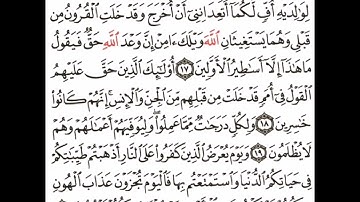 لِوَٰلِدَيْهِ أُفٍّ لَّكُمَآ أَتَعِدَانِنِىٓ أَنْ أُخْرَجَ وَقَدْ خَلَتِ ٱلْقُرُونُ مِن
قَبْلِى وَهُمَا يَسْتَغِيثَانِ ٱللَّهَ وَيْلَكَ ءَامِنْ إِنَّ وَعْدَ ٱللَّهِ حَقٌّ فَيَقُولُ
مَا هَٰذَآ إِلَّآ أَسَٰطِيرُ ٱلْأَوَّلِينَ ١٧ أُو۟لَٰٓئِكَ ٱلَّذِينَ حَقَّ عَلَيْهِمُ
ٱلْقَوْلُ فِىٓ أُمَمٍ قَدْ خَلَتْ مِن قَبْلِهِم مِّنَ ٱلْجِنِّ وَٱلْإِنسِ إِنَّهُمْ كَانُوا۟
خَٰسِرِينَ ١٨ وَلِكُلٍّ دَرَجَٰتٌ مِّمَّا عَمِلُوا۟ وَلِيُوَفِّيَهُمْ أَعْمَٰلَهُمْ وَهُمْ
لَا يُظْلَمُونَ ١٩ وَيَوْمَ يُعْرَضُ ٱلَّذِينَ كَفَرُوا۟ عَلَى ٱلنَّارِ أَذْهَبْتُمْ طَيِّبَٰتِكُمْ
فِى حَيَاتِكُمُ ٱلدُّنْيَا وَٱسْتَمْتَعْتُم بِهَا فَٱلْيَوْمَ تُجْزَوْنَ عَذَابَ ٱلْهُونِ